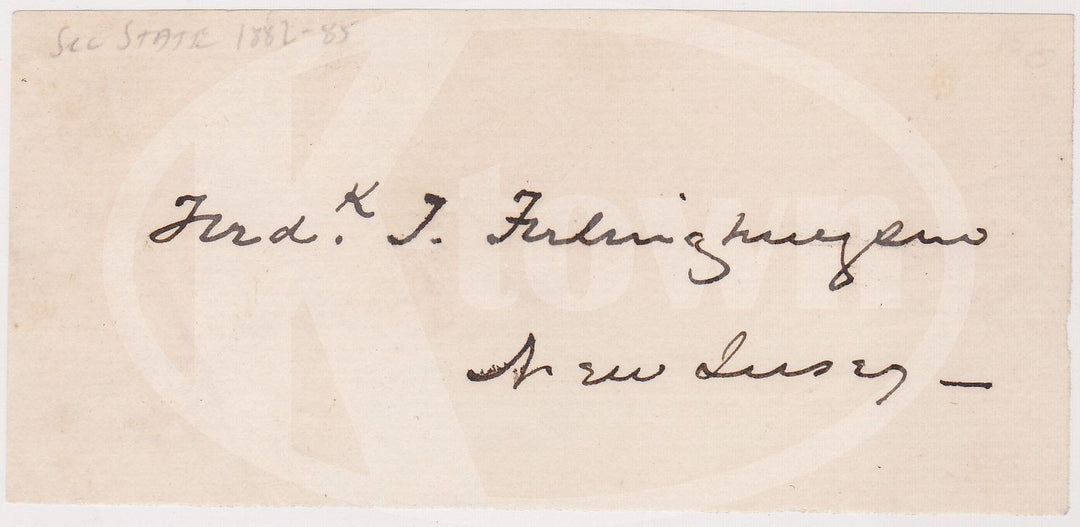 Sec STATE 1882-85
Fred.k T. Frelinghuysen
New Jersey —
K town